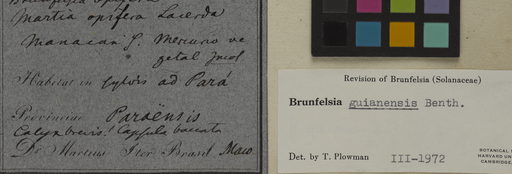 Martia opifera Lacerda
Manacan S. Mercurio ve
getal Incol
Habitat in sylvis ad Pará
Provinciae Paraënsis
Calyx brevis! Capsula baccata
Dr. Martius Iter Brasil
Revision of Brunfelsia (Solanaceae)
Brunfelsia guianensis Benth.
Det. by T. Plowman III-1972
BOTANICAL
HARVARD UN
CAMBRIDGE